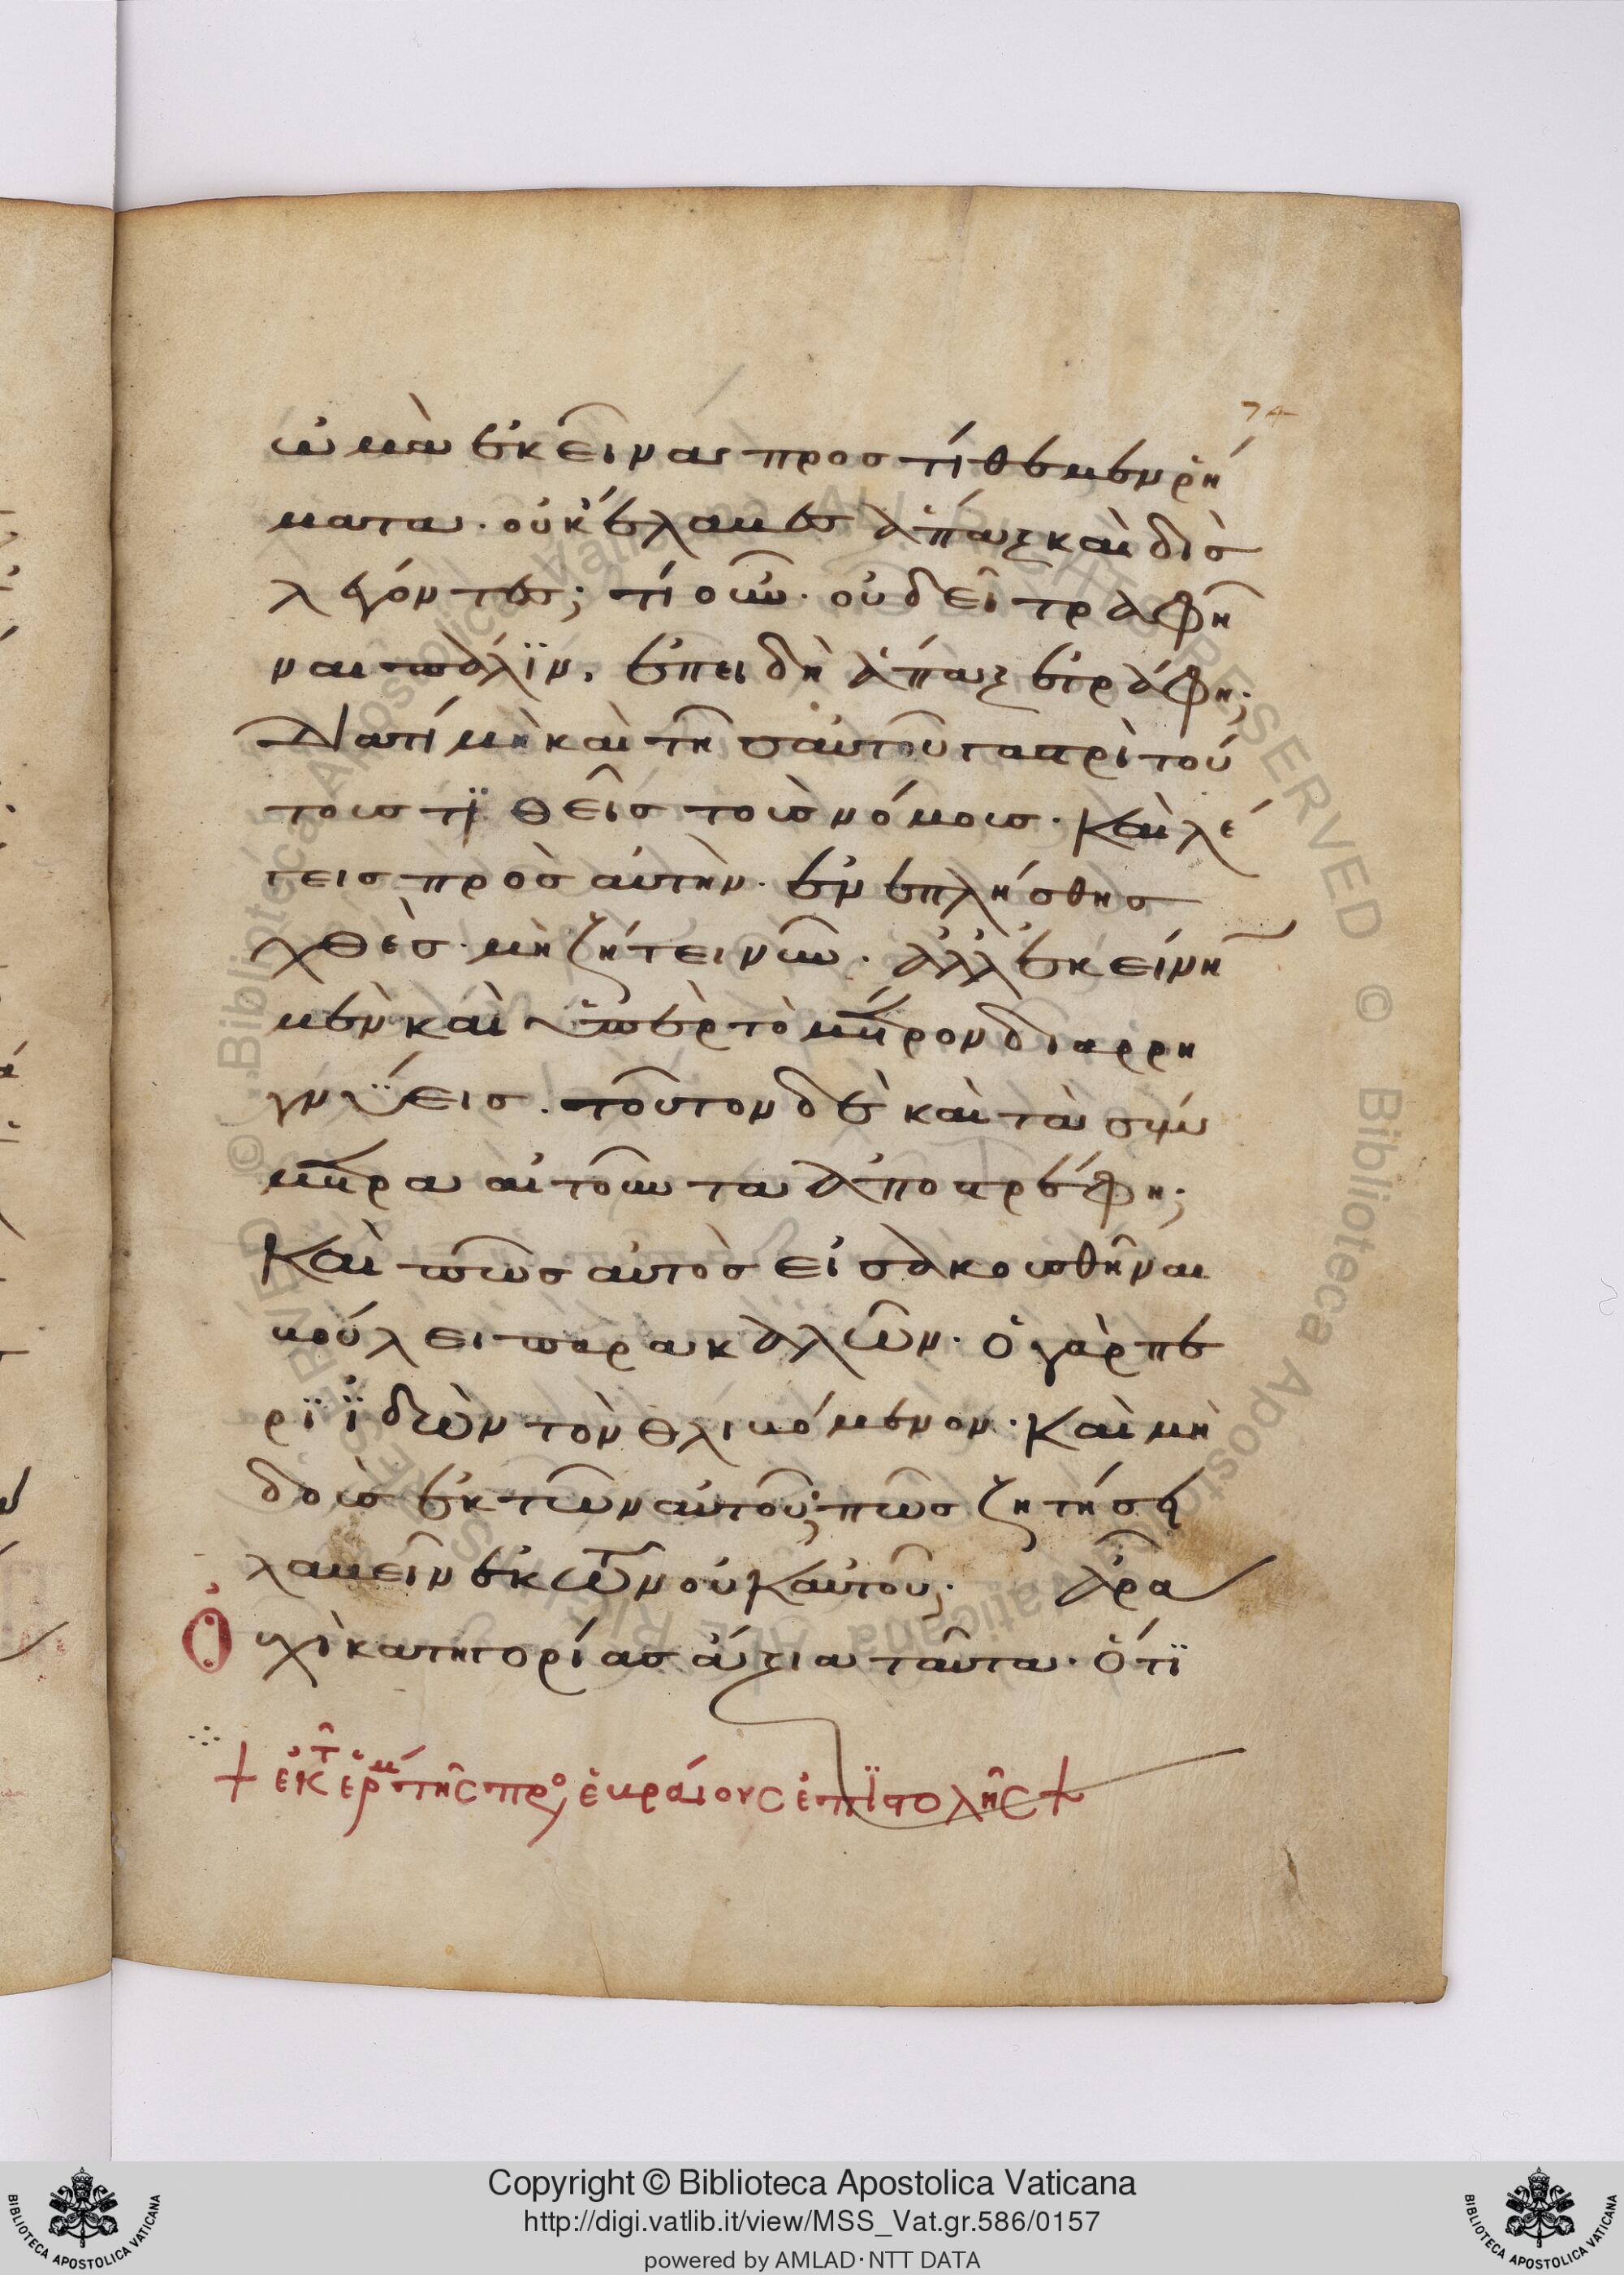 74
ὠμὰ ἐκεῖνα προστίθεμεν ῥή
ματα. οὐκ ἔλαβες ἅπαξ καὶ δὶς
λέγοντες; τί οὖν. οὐ δεῖ τραφῆ
ναι πάλϊν, ἐπειδὴ ἅπαξ ἐτράφη;
Διατί μὴ καὶ τῆ σαυτοῦ γαστρὶ τού
τους τϊθεῖς τοὺς νόμους. Καὶ λέ
γεις πρὸς αὐτὴν. ἐνεπλήσθης
χθὲς. μὴ ζήτει νῦν. ἀλλ' ἐκείνη
μὲν καὶ ὑπὲρ τὸ μέτρον διαρρη
γνϋεις. τοῦτον δὲ καὶ τὰ σύμ
μετρα αἰτοῦντα ἀποστρέφη;
Καὶ πῶς αὐτὸς εἰσακουσθῆναι
βούλει παρακαλῶν. ὁ γὰρ πε
ρϊϊδὼν τὸν θλιβόμενον. καὶ μὴ
δοὺς ἐκ τῶν αὐτοῦ; πῶς ζητήσει
λαβεῖν ἐκ τῶν οὐκ αὐτοῦ; ἆρα
Οὐχὶ κατηγορίας ἄξια ταῦτα. ὅτϊ
+ ἐκ τ ἑρμ τῆς πρὸς ἑβραίους ἐπϊστολῆς +
Copyright © Biblioteca Apostolica Vaticana
http://digi.vatlib.it/view/MSS_Vat.gr.586/0157
powered by AMLAD·NTT DATA
BIBLIOTECA APOSTOLICA VATICANA
BIBLIOTECA APOSTOLICA VATICANA